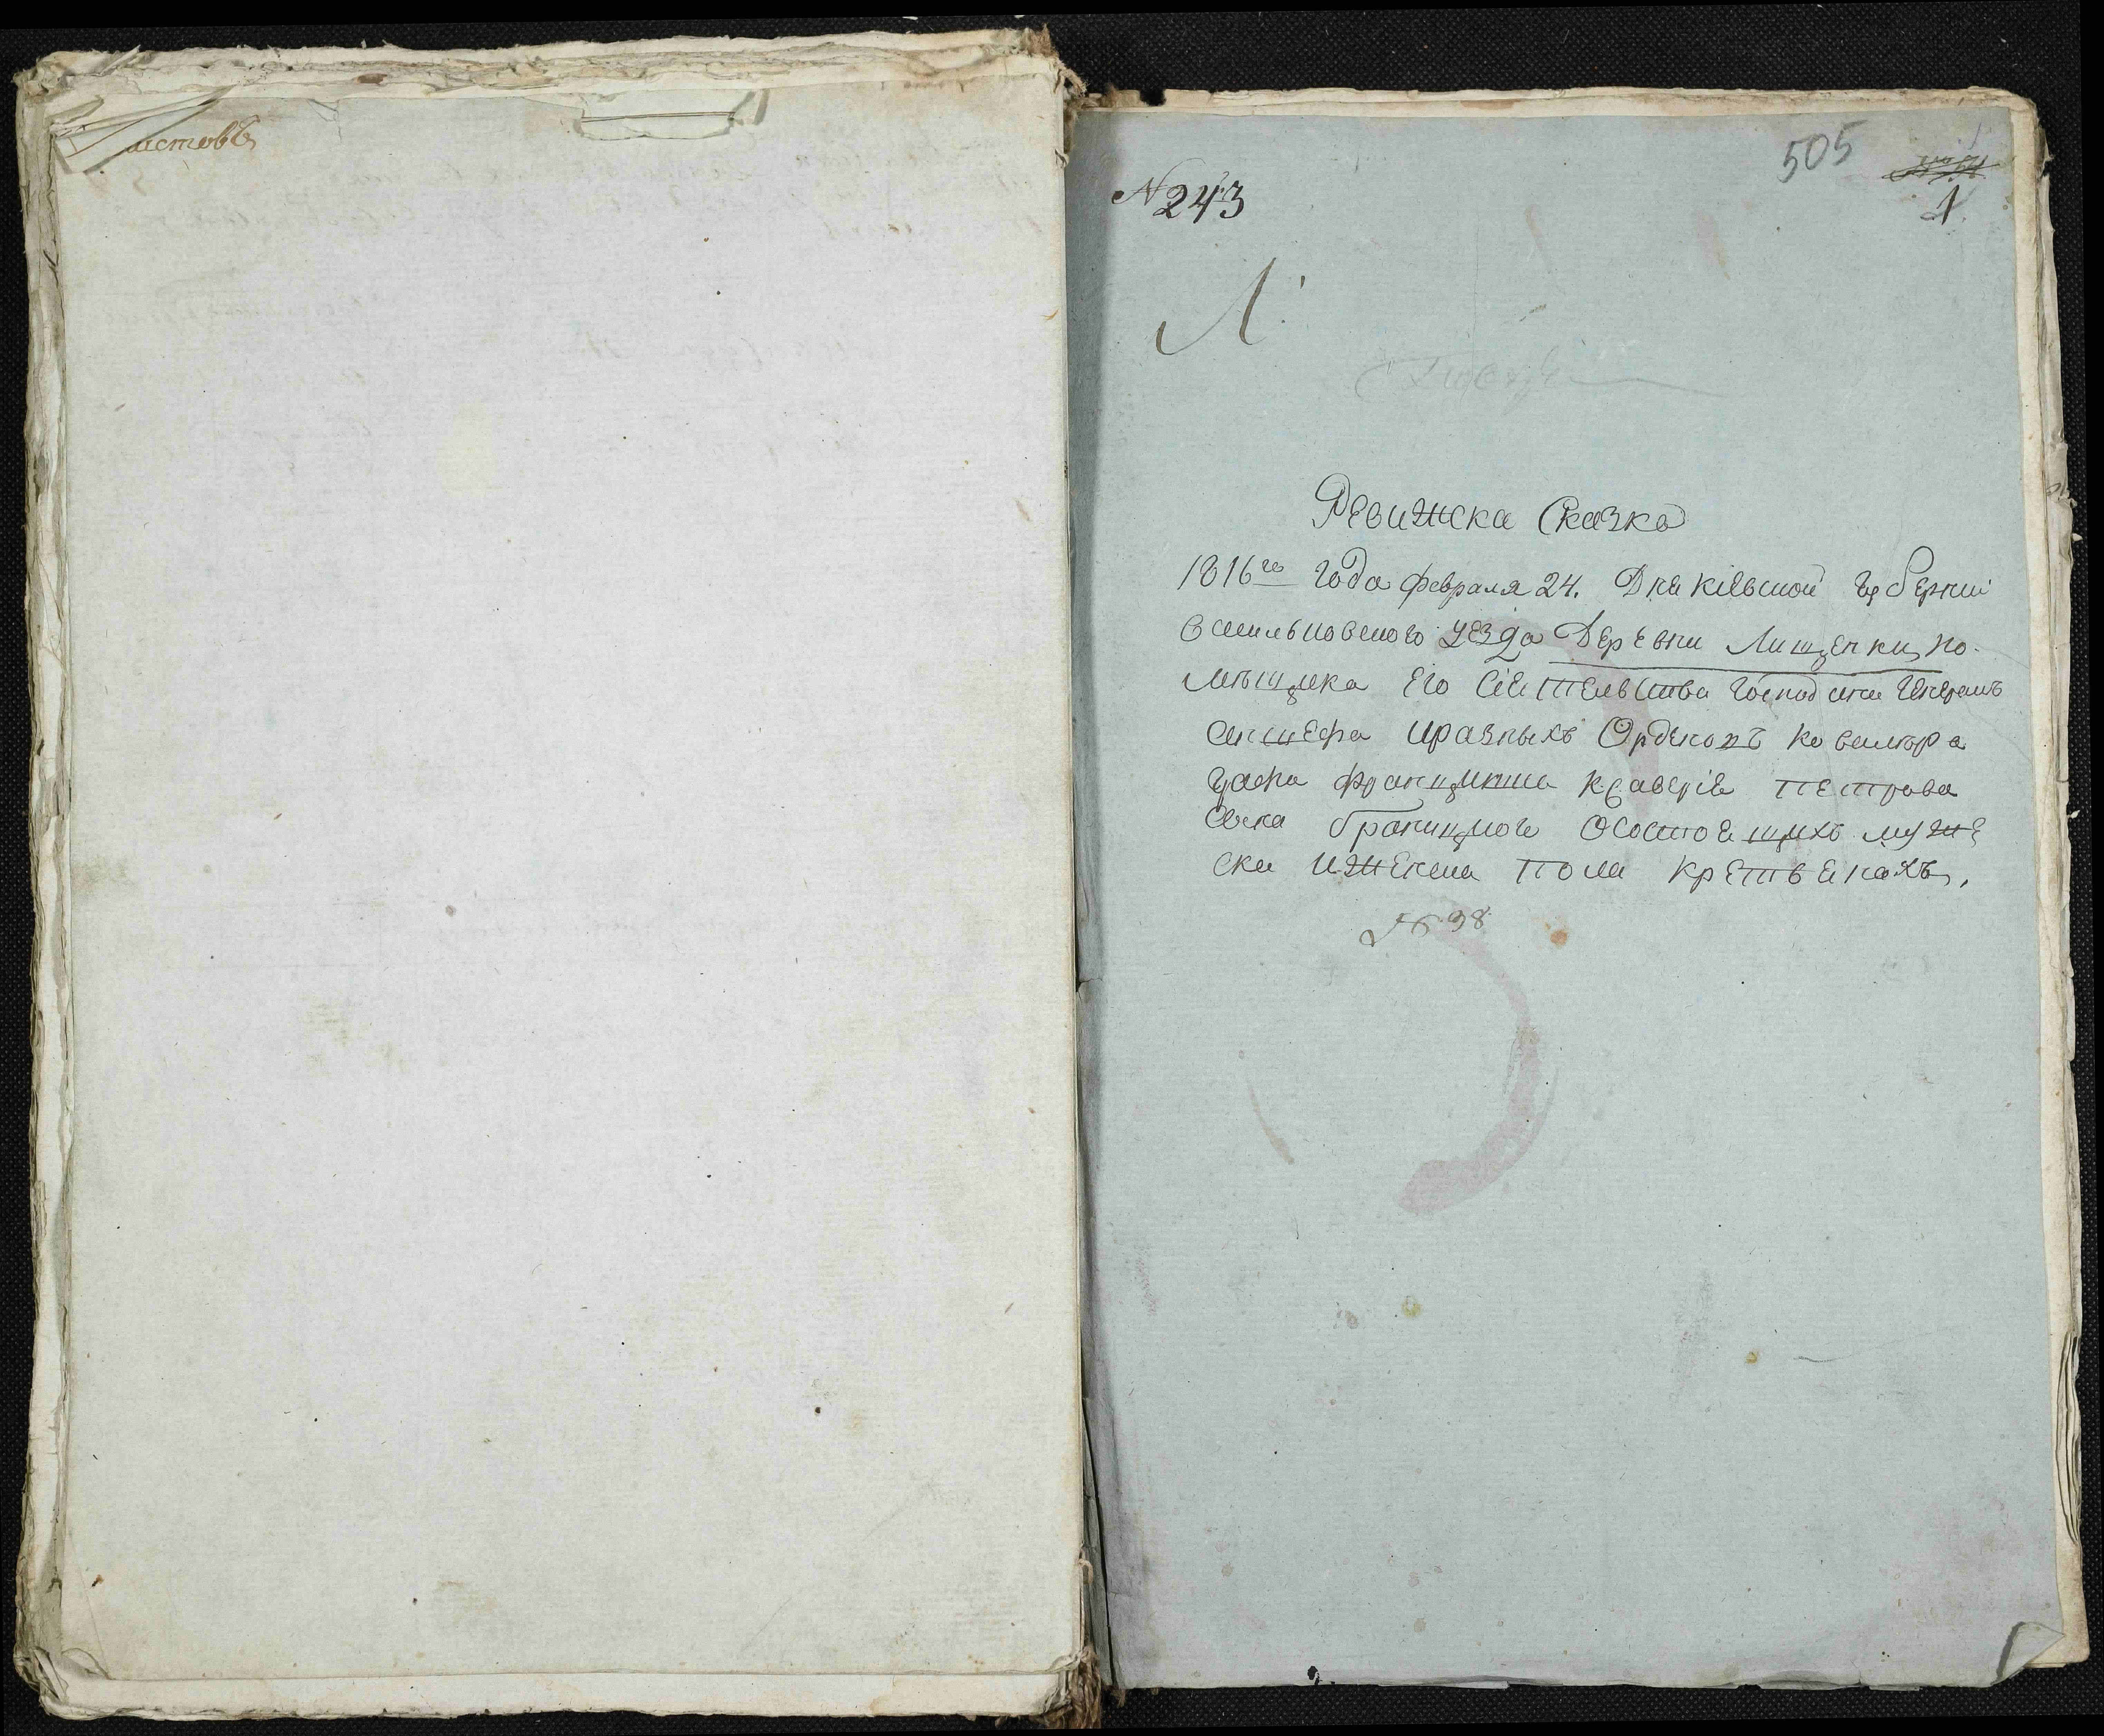 листовъ
505
N 243
1
Л
Ревижска Сказка
1816го года февраля 24. Дня киевской губернии
васильковского уезда Деревни Лищенки, по-
мѣщика Его Сіетельства Господина Генералъ
Аншефа и разныхъ Орденовъ Ковалера
Графа францишка Ксаверіе петрова
Сына браницкого О состоещихъ муже
ска и женска пола крестьенахъ,
№ 98